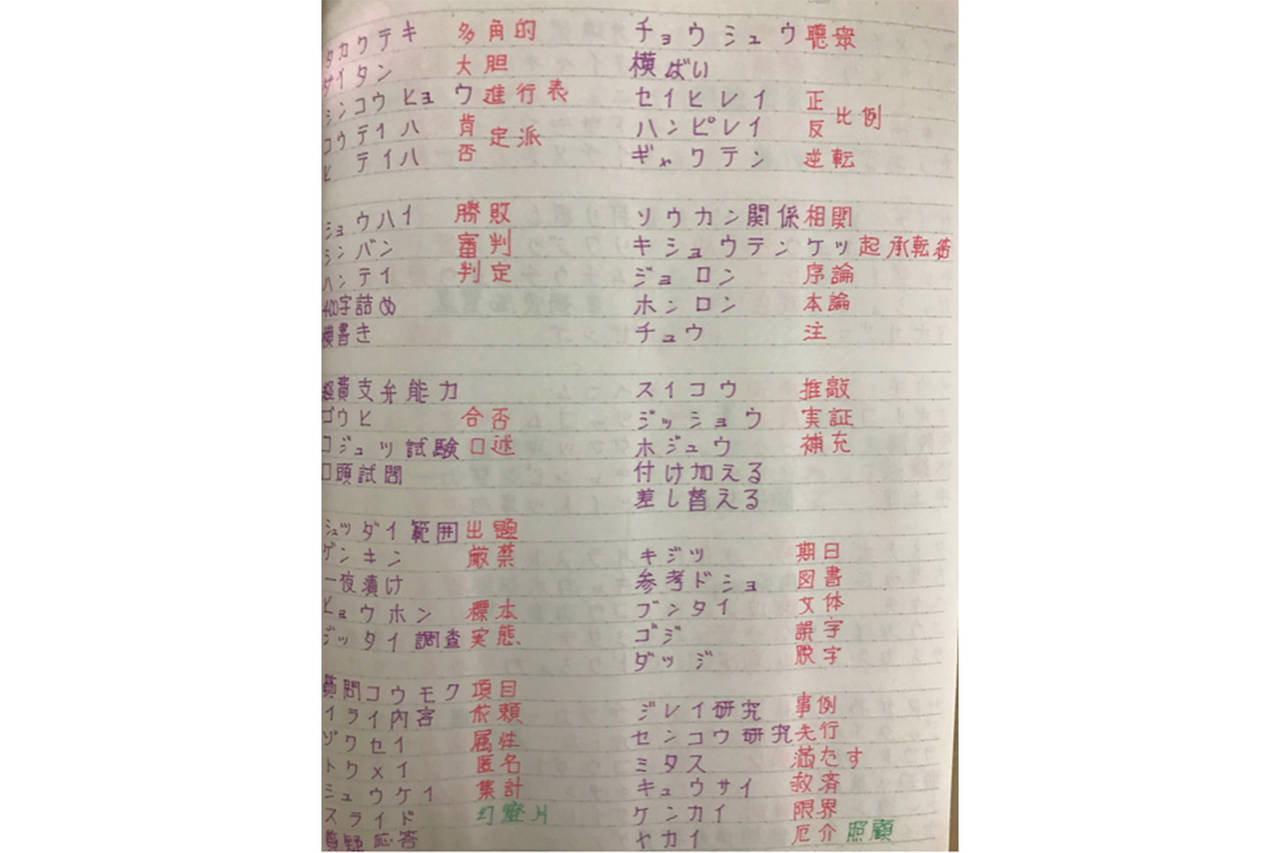 タカクテキ 多角的
ダイタン 大胆
シンコウヒョウ 進行表
コウテイハ 肯定派
ヒテイハ 否
ショウハイ 勝敗
シンバン 審判
ハンテイ 判定
400字詰め
横書き
経費支弁能力
ゴウヒ 合否
口ジュツ試験 口述
口頭試問
シュツダイ範囲 出題
ゲンキン 厳禁
一夜漬け
ヒョウホン 標本
ジッタイ調査 実態
質問コウモク 項目
イライ内容 依頼
ゾクセイ 属性
トクメイ 匿名
シュウケイ 集計
スライド 幻燈片
質疑応答
チョウシュウ 聴衆
横ばい
セイヒレイ 正比例
ハンピレイ 反
ギャクテン 逆転
ソウカン関係 相関
キショウテンケツ 起承転結
ジョロン 序論
ホンロン 本論
チュウ 注
スイコウ 推敲
ジッショウ 実証
ホジュウ 補充
付け加える
差し替える
キジツ 期日
参考ドショ 図書
ブンタイ 文体
ゴジ 誤字
ダツジ 脱字
ジレイ研究 事例
センコウ研究 先行
ミタス 満たす
キュウサイ 救済
ゲンカイ 限界
ヤカイ 厄介 照顧